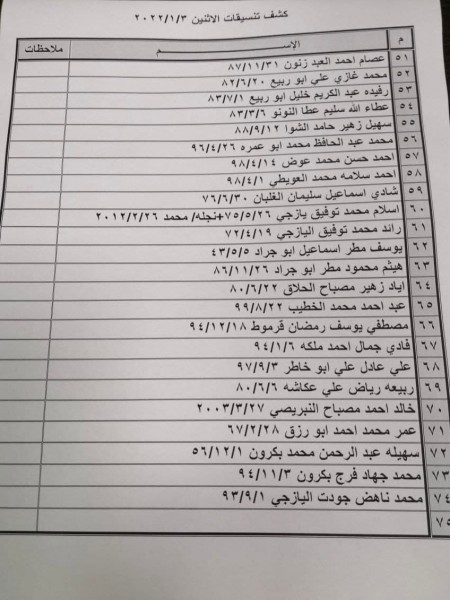 كشف تنسيقات الاثنين ٢٠٢٢/١/٣
م الإســـم ملاحظات
٥١ عصام احمد العبد زنون ٨٧/١١/٣١
٥٢ محمد غازي علي ابو ربيع ٨٢/٦/٢٠
٥٣ رفيده عبد الكريم خليل ابو ربيع ٨٣/٧/١
٥٤ عطاء الله سليم عطا النونو ٨٣/٣/٦
٥٥ سهيل زهير حامد الشوا ٨٨/٩/١٢
٥٦ محمد عبد الحافظ محمد ابو عمره ٩٦/٤/٢٦
٥٧ احمد حسن محمد عوض ٩٨/٤/١٤
٥٨ احمد سلامه محمد العويطي ٩٨/٤/١
٥٩ شادي اسماعيل سليمان الغلبان ٧٦/٦/٣٠
٦٠ اسلام محمد توفيق يازجي ٧٥/٥/٢٦+نجله/ محمد ٢٠١٢/٢/٢٦
٦١ رائد محمد توفيق اليازجي ٧٢/٤/١٩
٦٢ يوسف مطر اسماعيل ابو جراد ٤٣/٥/٥
٦٣ هيثم محمود مطر ابو جراد ٨٦/١١/٢٦
٦٤ اياد زهير مصباح الحلاق ٨٠/٦/٢٢
٦٥ عبد احمد محمد الخطيب ٩٩/٨/٢٢
٦٦ مصطفي يوسف رمضان قرموط ٩٤/١٢/١٨
٦٧ فادي جمال احمد ملكه ٩٤/١/٦
٦٨ علي عادل علي ابو خاطر ٩٧/٩/٣
٦٩ ربيعه رياض علي عكاشه ٨٠/٦/٦
٧٠ خالد احمد مصباح النبريصي ٢٠٠٣/٣/٢٧
٧١ عمر محمد احمد ابو رزق ٦٧/٢/٢٨
٧٢ سهيله عبد الرحمن محمد بكرون ٥٦/١٢/١
٧٣ محمد جهاد فرج بكرون ٩٤/١١/٣
٧٤ محمد ناهض جودت اليازجي ٩٣/٩/١
٧٥